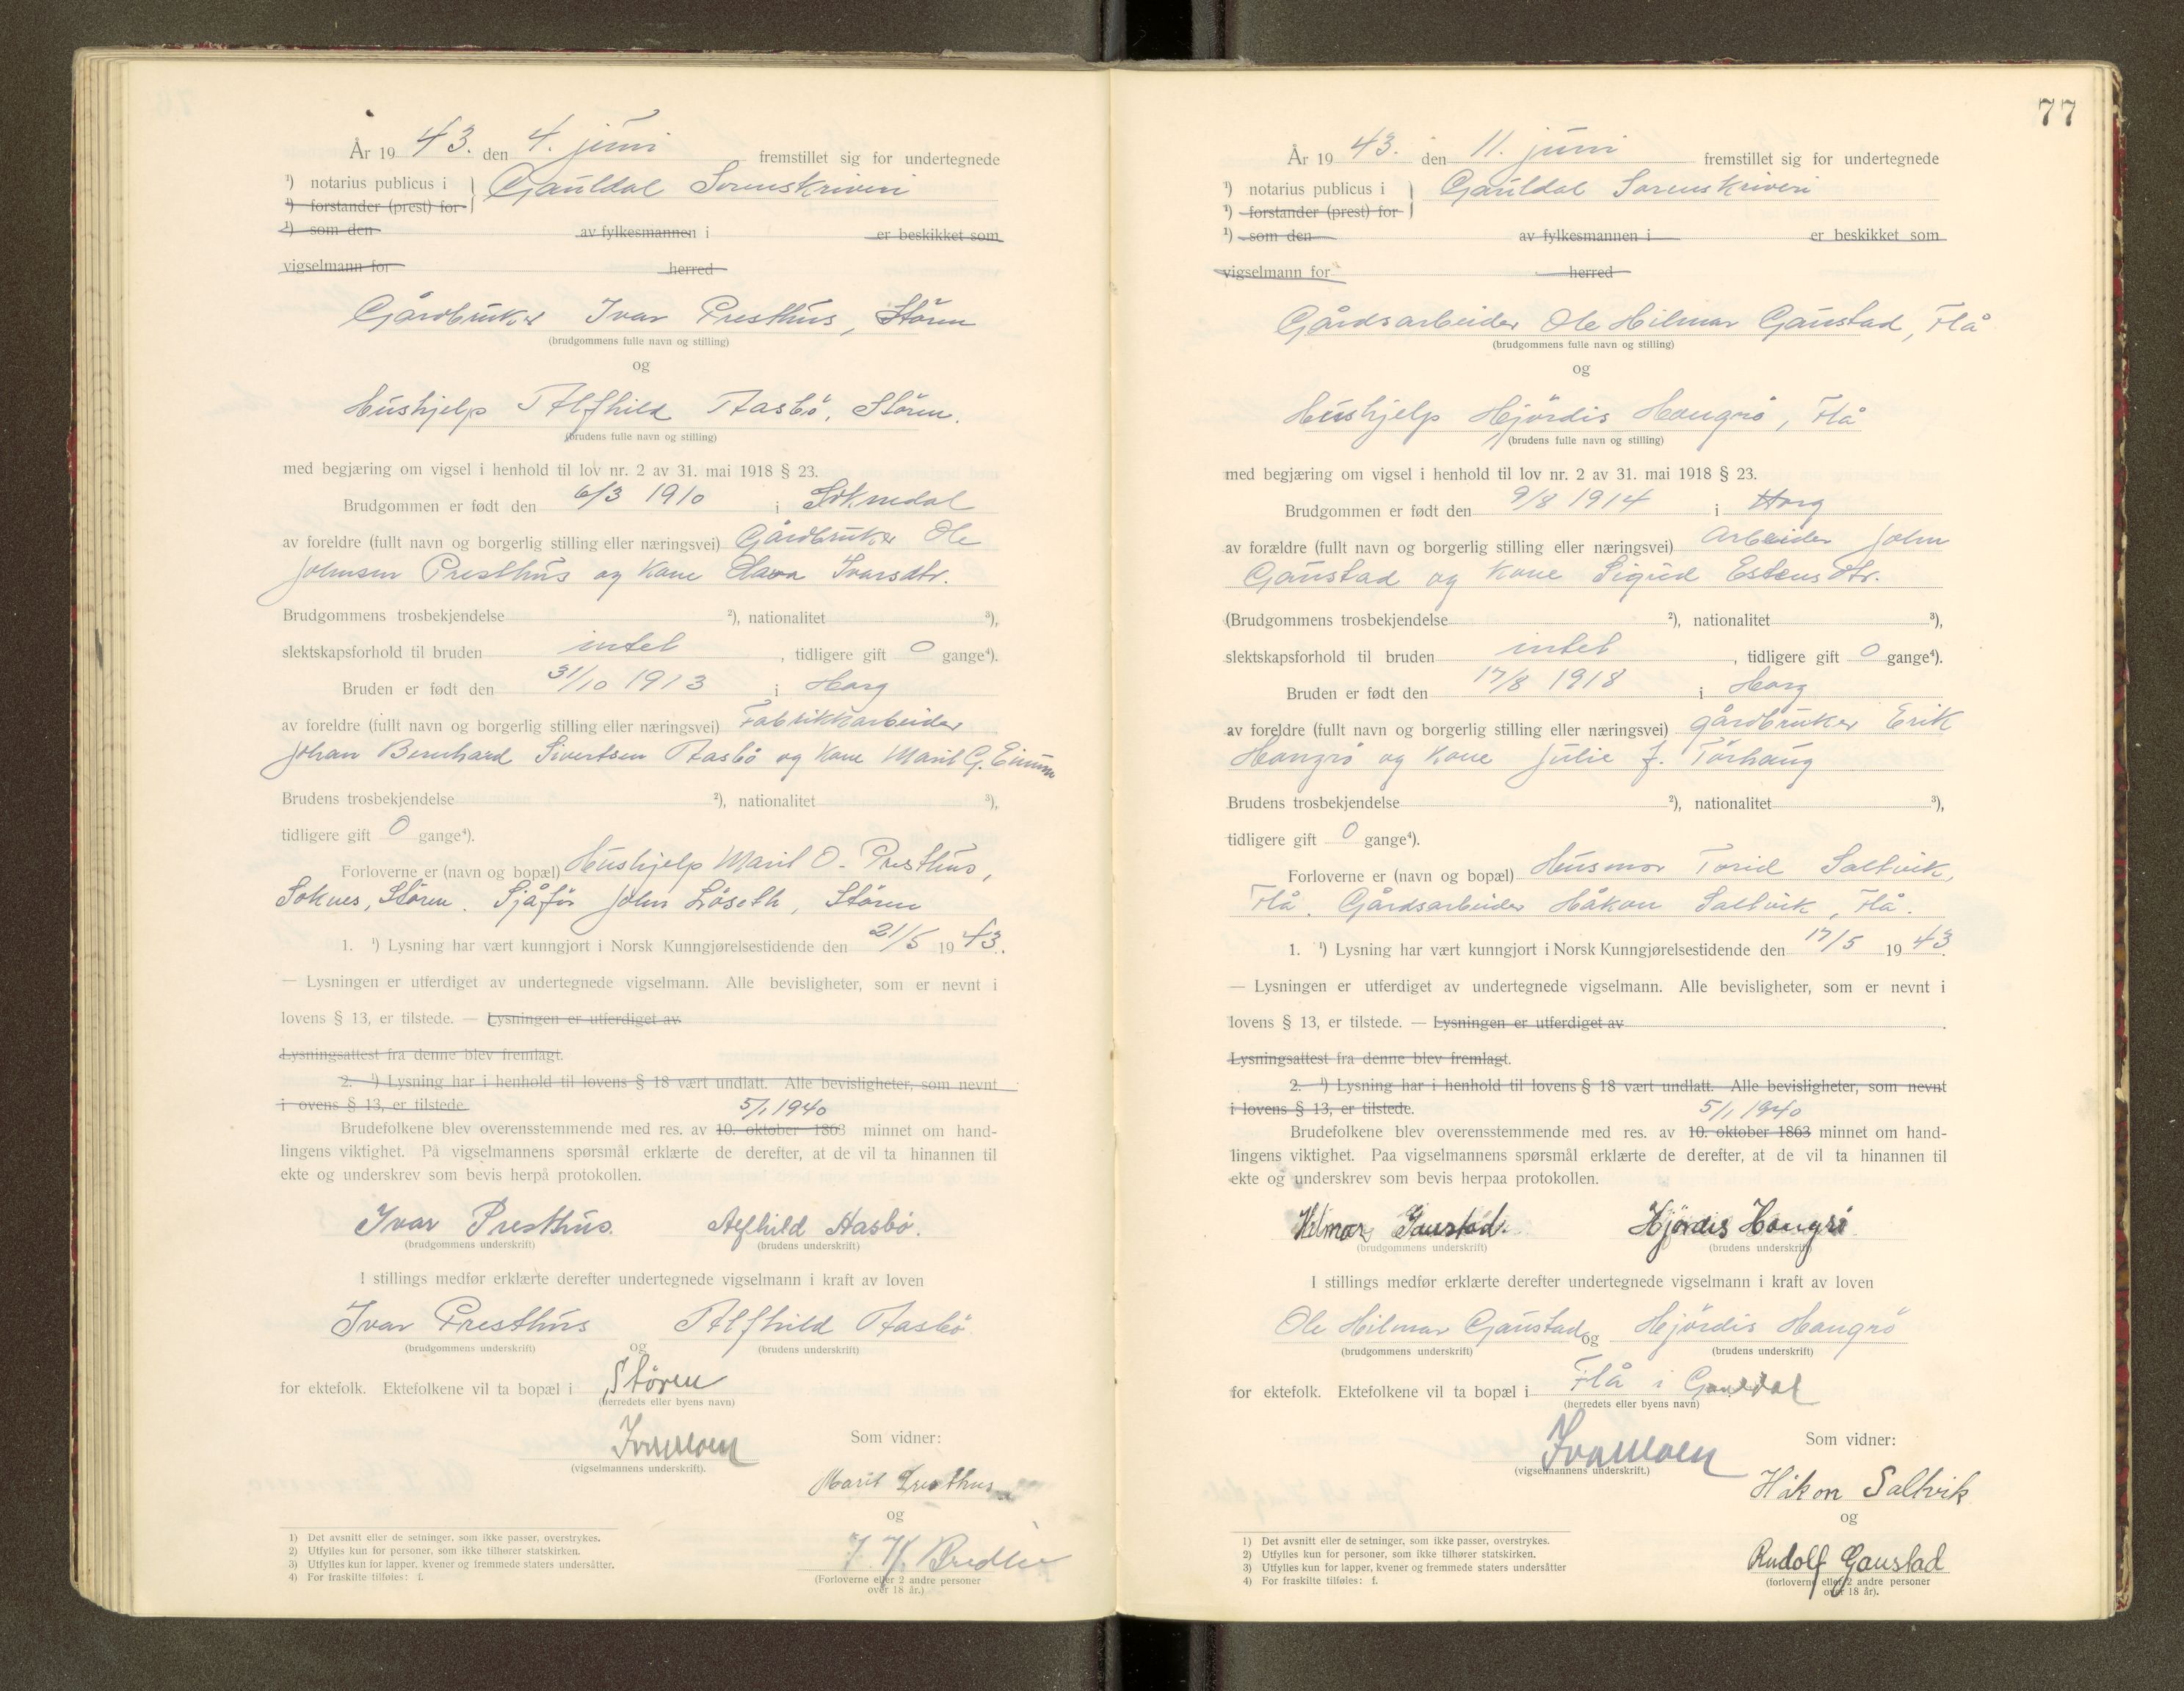 År 19 43. den 4. juni fremstillet sig for undertegnede
¹) notarius publicus i } Gauldal Sorenskriveri
¹) forstander (prest) for
¹) som den av fylkesmannen i er beskikket som
vigselmann for herred
Gårdbruker Ivar Presthus, Stören
(brudgommens fulle navn og stilling)
og
Hushjelp Alfhild Aasbö, Stören.
(brudens fulle navn og stilling)
med begjæring om vigsel i henhold til lov nr. 2 av 31. mai 1918 § 23.
Brudgommen er født den 6/3 1910 i Soknedal
av foreldre (fullt navn og borgerlig stilling eller næringsvei) Gårdbruker Ole
Johnsen Presthus og Kone Ivarsdtr.
Brudgommens trosbekjendelse ²), nationalitet ³),
slektskapsforhold til bruden intet, tidligere gift 0 gange⁴).
Bruden er født den 31/10 1913 i Horg
av foreldre (fullt navn og borgerlig stilling eller næringsvei) Fabrikkarbeider
Johan Bernhard Sivertsen Aasbö og Kone Marit G. Einum
Brudens trosbekjendelse ²), nationalitet ³),
tidligere gift 0 gange⁴).
Forloverne er (navn og bopæl) Hushjelp Marit O. Presthus,
Soknes, Stören. Sjåför John Löseth, Stören
1. ¹) Lysning har vært kunngjort i Norsk Kunngjørelsestidende den 21/5 19 43.
— Lysningen er utferdiget av undertegnede vigselmann. Alle bevisligheter, som er nevnt i
lovens § 13, er tilstede. — Lysningen er utferdiget av
Lysningsattest fra denne blev fremlagt.
2. ¹) Lysning har i henhold til lovens § 18 vært undlatt. Alle bevisligheter, som nevnt
i ovens § 13, er tilstede
5/1 1940
Brudefolkene blev overensstemmende med res. av 10. oktober 1863 minnet om hand-
lingens viktighet. På vigselmannens spørsmål erklærte de derefter, at de vil ta hinannen til
ekte og underskrev som bevis herpå protokollen.
Ivar Presthus. Alfhild Aasbø.
(brudgommens underskrift) (brudens underskrift)
I stillings medfør erklærte derefter undertegnede vigselmann i kraft av loven
Ivar Presthus og Alfhild Aasbö
(brudgommens underskrift) (brudens underskrift)
for ektefolk. Ektefolkene vil ta bopæl i Støren
(herredets eller byens navn)
(vigselmannens underskrift).
Som vidner:
Marit Presthus
og
(Forloverne eller 2 andre personer
over 18 år.)
1) Det avsnitt eller de setninger, som ikke passer, overstrykes.
2) Utfylles kun for personer, som ikke tilhører statskirken.
3) Utfylles kun for lapper, kvener og fremmede staters undersåtter.
4) For fraskilte tilføies: f.
77
År 19 43. den 11. juni fremstillet sig for undertegnede
¹) notarius publicus i } Gauldal Sorenskriveri
¹) forstander (prest) for
¹) som den av fylkesmannen i er beskikket som
vigselmann for herred
Gårdsarbeider Ole Hilmar Gaustad, Flå
(brudgommens fulle navn og stilling)
og
Hushjelp Hjördis Haugrö, Flå
(brudens fulle navn og stilling)
med begjæring om vigsel i henhold til lov nr. 2 av 31. mai 1918 § 23.
Brudgommen er født den 9/8 1914 i Horg
av forældre (fullt navn og borgerlig stilling eller næringsvei) Arbeider John
Gaustad og Kone Sigrid Estensdtr.
(Brudgommens trosbekjendelse ²), nationalitet ³),
slektskapsforhold til bruden intet, tidligere gift 0 gange⁴).
Bruden er født den 17/8 1918 i Horg
av foreldre (fullt navn og borgerlig stilling eller næringsvei) gårdbruker Erik
Haugrö og Kone Julie J. Törhaug
Brudens trosbekjendelse ²), nationalitet ³),
tidligere gift 0 gange⁴).
Forloverne er (navn og bopæl) Husmor Torid Saltvik,
Flå. Gårdsarbeider Håkon Saltvik, Flå.
1. ¹) Lysning har vært kunngjort i Norsk Kunngjørelsestidende den 17/5 19 43
— Lysningen er utferdiget av undertegnede vigselmann. Alle bevisligheter, som er nevnt i
lovens § 13, er tilstede. — Lysningen er utferdiget av .
Lysningsattest fra denne blev fremlagt.
2. ¹) Lysning har i henhold til lovens § 18 vært undlatt. Alle bevisligheter, som nevnt
i lovens § 13, er tilstede.
5/1 1940
Brudefolkene blev overensstemmende med res. av 10. oktober 1863 minnet om hand-
lingens viktighet. Paa vigselmannens spørsmål erklærte de derefter, at de vil ta hinannen til
ekte og underskrev som bevis herpaa protokollen.
Hilmar Gaustad. Hjördis Haugrö
(brudgommens underskrift) (brudens underskrift)
I stillings medfør erklærte derefter undertegnede vigselmann i kraft av loven
Ole Hilmar Gaustad og Hjördis Haugrö
(brudgommens underskrift) (brudens underskrift)
for ektefolk. Ektefolkene vil ta bopæl i Flå i Gauldal
(herredets eller byens navn)
(vigselmannens underskrift.)
Som vidner:
Håkon Saltvik
og
Rudolf Gaustad
(forloverne eller 2 andre personer
over 18 år).
1) Det avsnitt eller de setninger, som ikke passer, overstrykes.
2) Utfylles kun for personer, som ikke tilhører statskirken.
3) Utfylles kun for lapper, kvener og fremmede staters undersåtter
4) For fraskilte tilføies: f.